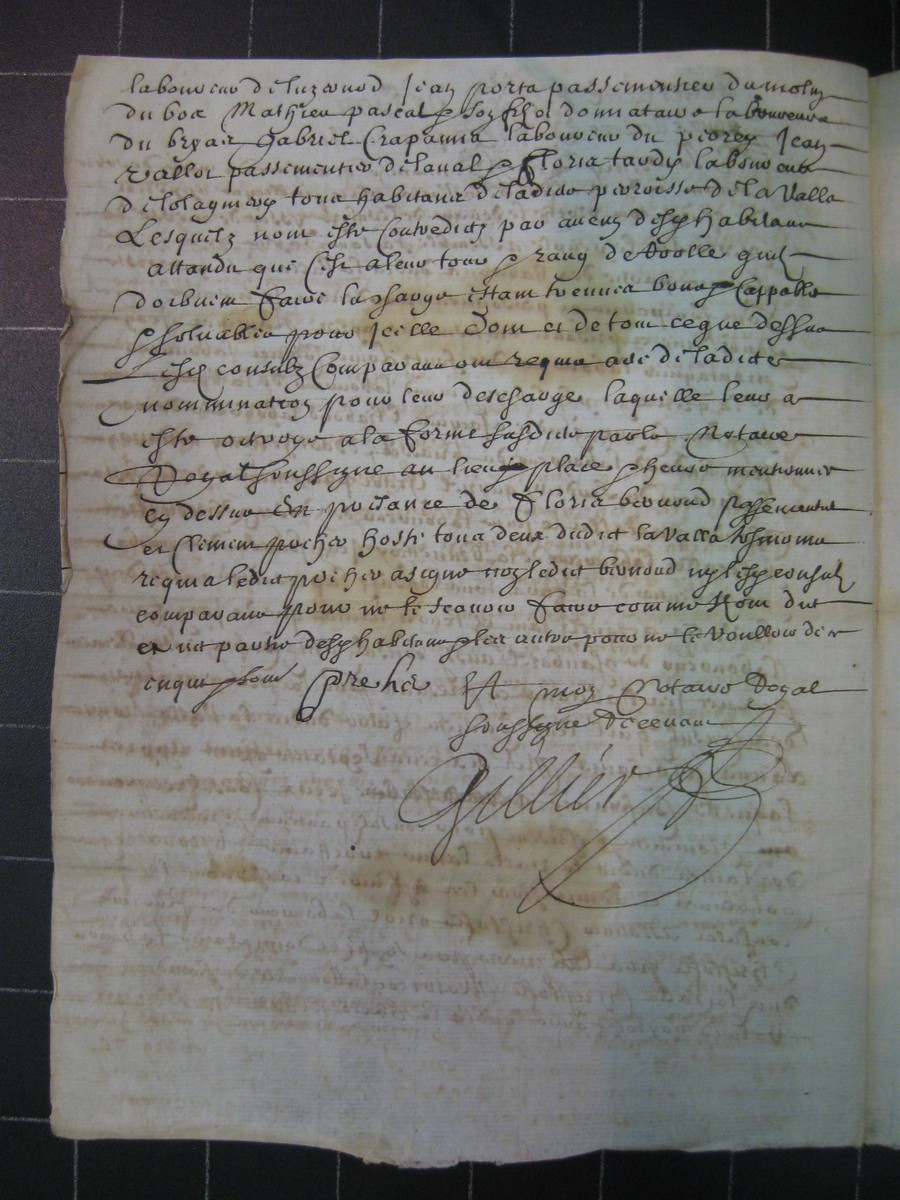 laboureur de luzernod Jean porta passementier du molin
du boc Mathieu pascal & son filz donnataire laboureurs
du bryat Gabriel Crapanna laboureur du piorey Jean
vallot passementier de laval & floris tardy laboureur
de tous habitans de ladicte perroisse de la Valla
Lesquelz nom este contredictz par aucun desd habitans
attandu que cest a leur tour & rang de roolle quilz
doibvent faire la charge estant tenus bons & cappables
& solvables pour icelle Dont et de tout ce que dessus
lesd consulz comparans ont requis acte de ladicte
nommination pour leur descharge laquelle leur a
este octroye a la forme susdicte par le Notaire
Royal soussigne au lieu place & heure mentionnes
cy dessus En presance de Floris bernoud passementier
et Clement pocher hoste tous deux dudict la Valla tesmoins
requis ledict pocher a signe non ledict bernoud ny lesd consulz
comparans pour ne le scavoir faire comme ilz ont dict
et une partie desd habitans & les autres pour ne le voulloir de ce
enquis & somes Et moy Notaire Royal
soussigne recevant
Gillier